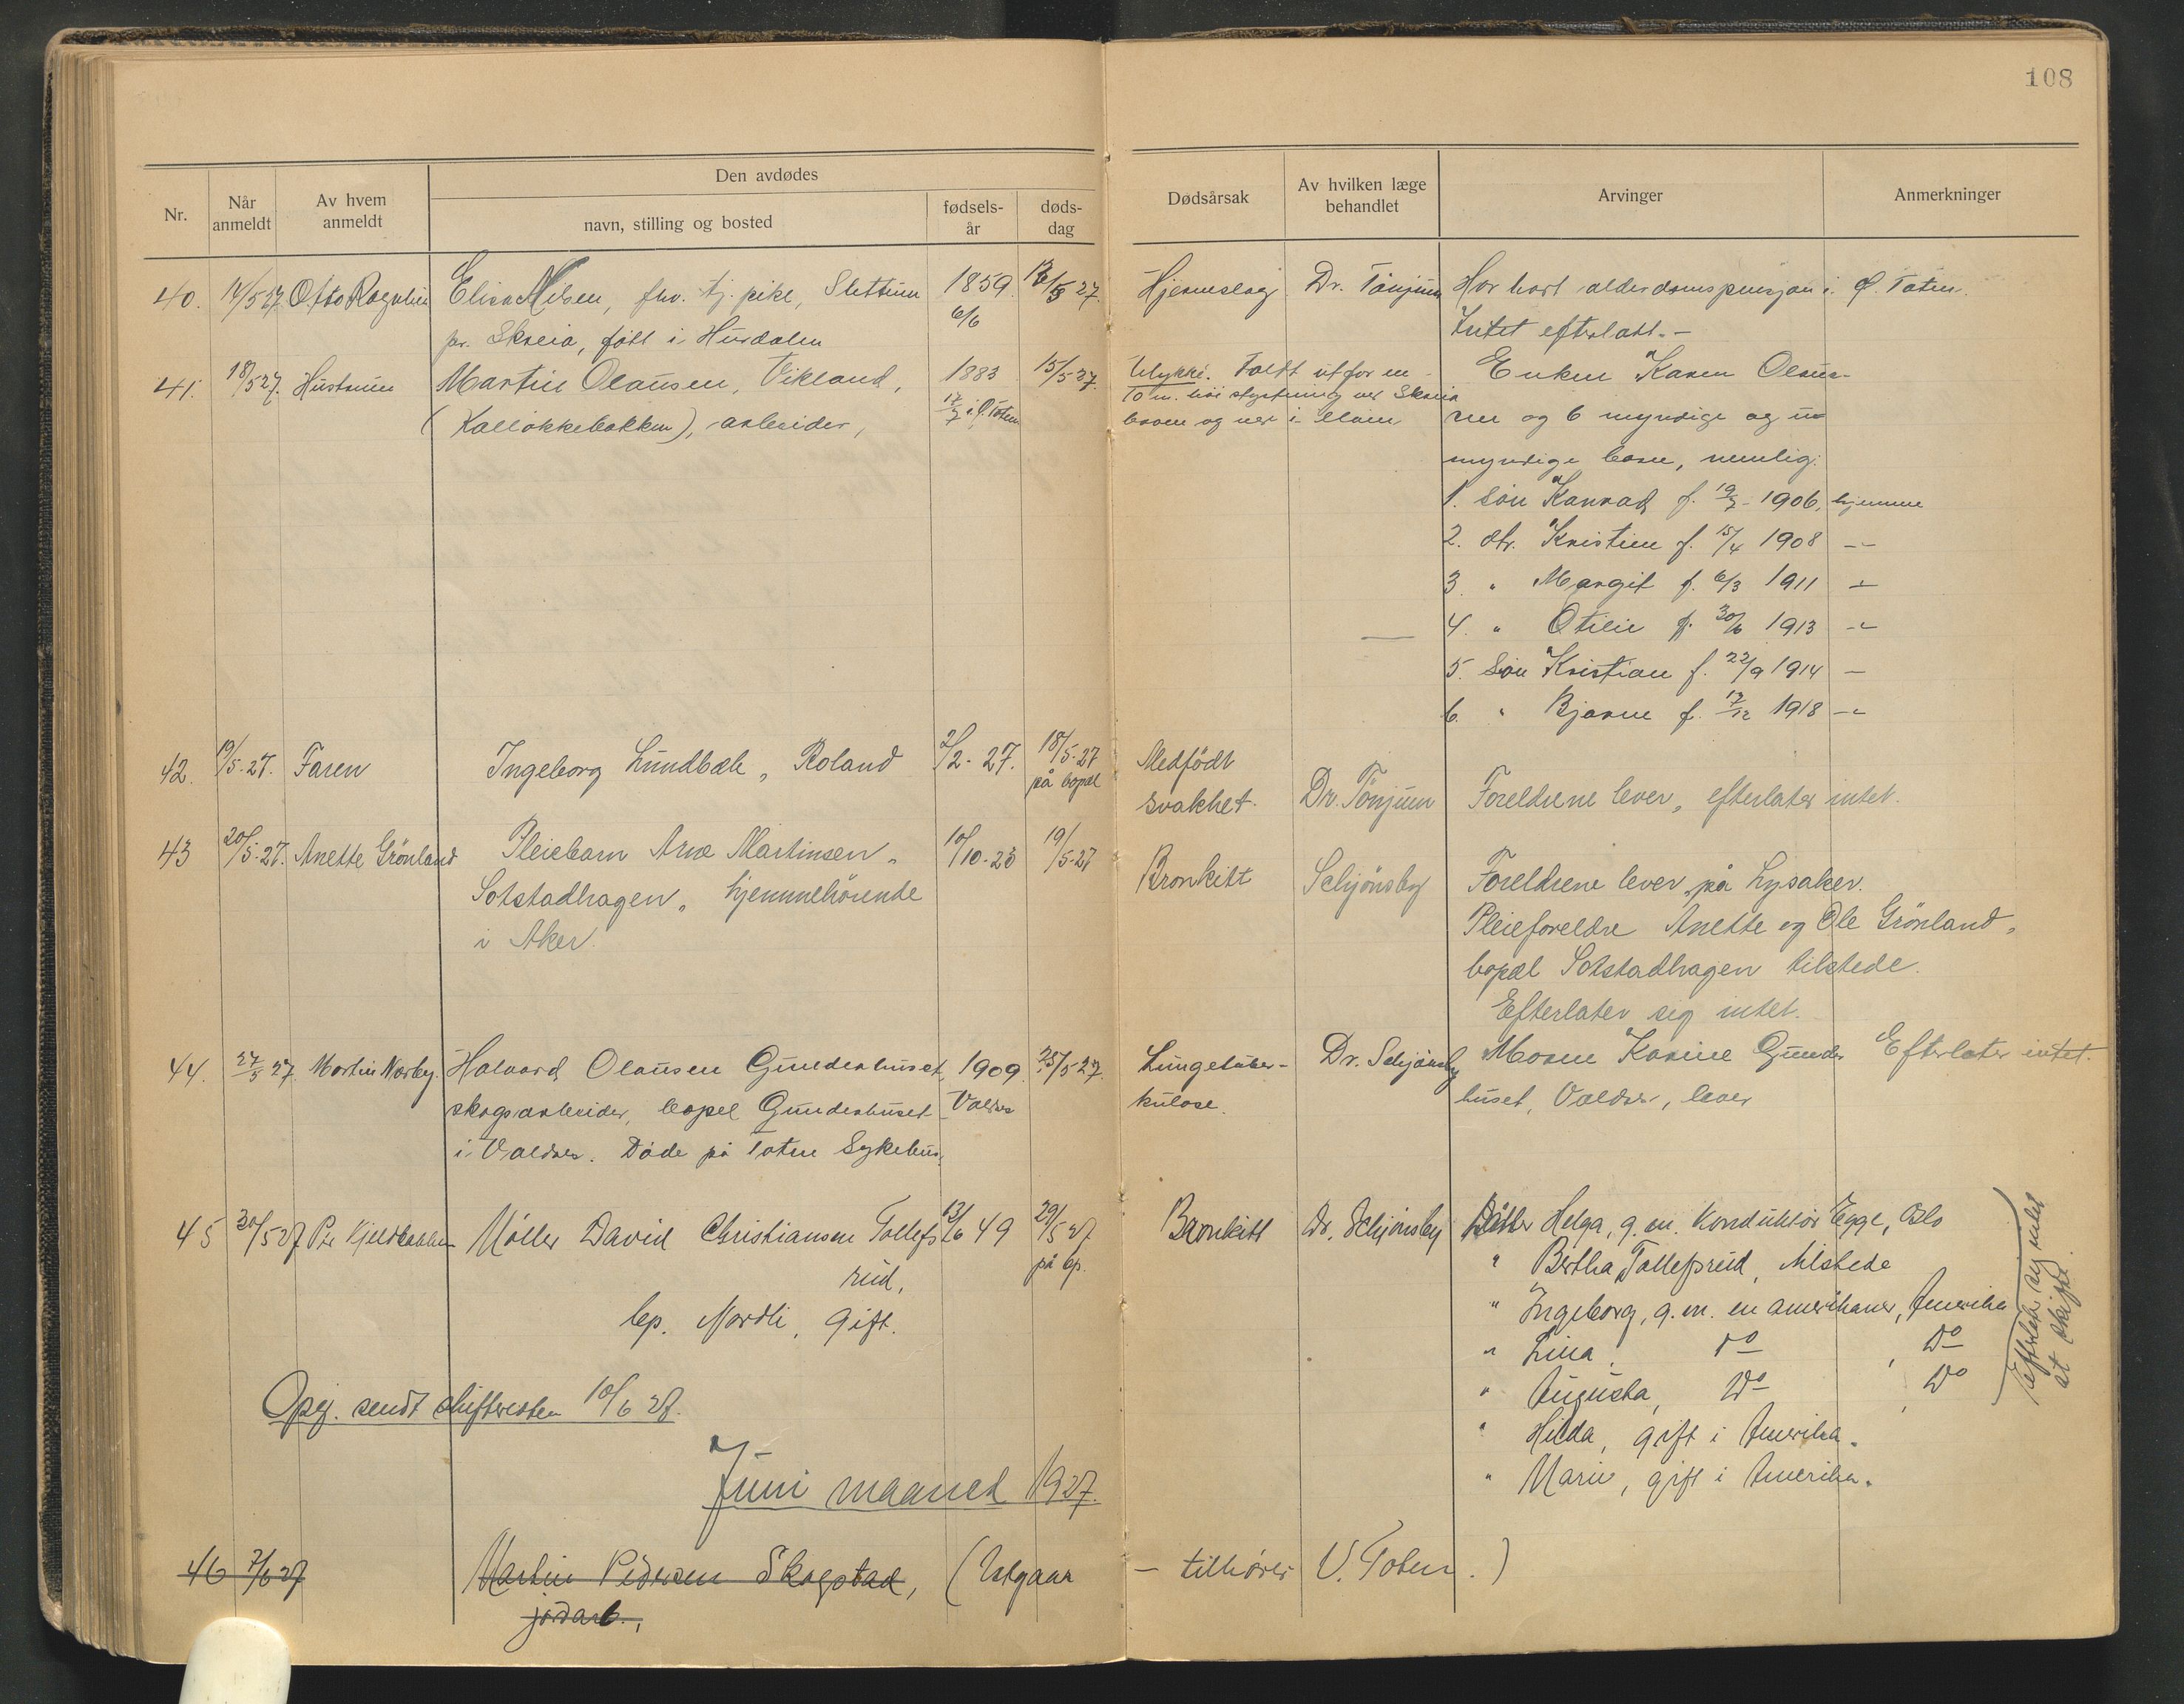 108
Nr.
Når anmeldt
Av hvem anmeldt
Den avdødes
navn, stilling og bosted
fødsels-år
døds-dag
Dødsårsak
Av hvilken læge behandlet
Arvinger
Anmerkninger
40. 14/5 27. Otto Rognlien Elise Nilsen, fhv. tj. pike, Slettum 1859. 12/5 27. Hjerneslag Dr. Tönjum Har hatt alderdomspensjon i Ø. Toten.
pr. Skreia, født i Hurdalen 6/6 Intet efterlatt.-
41. 18/5 27. Hustruen Martin Olausen, Vikland, 1883 15/5 27. Ulykke. Faldt utfor en Enken Karen Olau-
(Kalløkkebakken), arbeider, 17/7 i Ø. Toten 10 m. höi styrtning ver Skreia sen og 6 myndige og u-
banen og ner i elven myndige barn, nemlig:
1. sön Konrad f. 19/7 - 1906, hjemme
2. dtr. Kristine f. 15/4 1908 -"-
3. " Margit f. 6/3 1911 -"-
4. " Otilie f. 30/6 1913 -"-
5. Sön Kristian f. 22/9 1914 -
6. " Bjarne f. 17/12 1918 -"-
42. 19/5-27. Faren Ingeborg Lundbæk, Roland 2/2-27. 18/5-27 på bopæl Medfödt
svakhet. Dr. Tönjum Foreldrene lever, efterlater intet.
43 20/5-27. Anette Grönland Pleiebarn Arne Martinsen, 10/10-23 19/5-27 Bronkitt Schjönsby Foreldrene lever, på Lysaker.
Sotstadhagen, hjemmehörende Pleieforeldre Anette og Ole Grönland,
i Aker. bopæl Sotstadhagen tilstede.
Efterlater sig intet.
44. 27/5 27. Martin Narby. Halvard Olausen Gunderhuset, 1909. 25/5-27. Lungetuber- Dr. Schjönsby Moren Karine Gunder Efterlater intet.
skogsarbeider, bopel Gunderhuset Valdres kulose. huset, Valdres, lever
i Valdres. Döde på Toten Sykehus.
45 30/5 27 Per Kjeldbakken Möller David Christiansen Tollefs 13/6 49 29/5 27 Bronkitt Dr. Schjönsby Datter Helga, g. m. Konduktör Egge, Oslo
rud, på bp. " Bertha Tollefsrud, tilstede
bp. Nordli, gift. " Ingeborg, g. m. en amerikaner, Amerika
" Lina, do, do
" Augusta, do, do
" Hilda, gift i Amerika.
" Marie, gift i Amerika.
Efterlater sig midler at skifte.
Opg. sendt skifteretten 10/6 27.
Juni maaned 1927.
46 7/6 27 Martin Pedersen Skogstad, (Utgaar - tilhörer V. Toten.)
jordarb.,